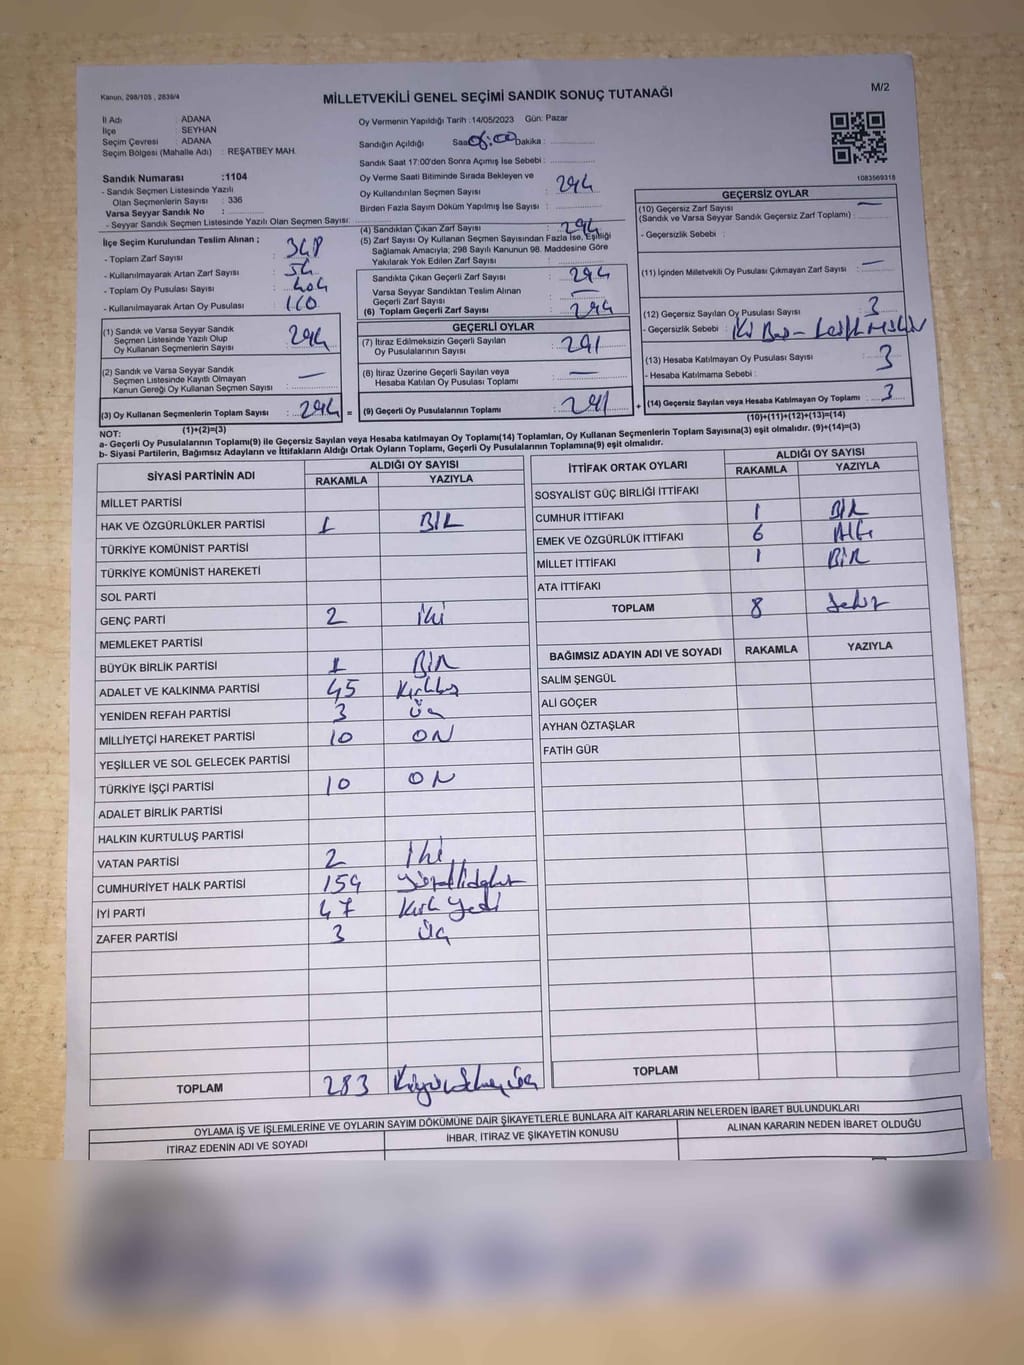 Kanun, 298/105 , 2839/4
MİLLETVEKİLİ GENEL SEÇİMİ SANDIK SONUÇ TUTANAĞI
M/2
İl Adı : ADANA
İlçe : SEYHAN
Seçim Çevresi : ADANA
Seçim Bölgesi (Mahalle Adı) : REŞATBEY MAH.
Sandık Numarası :1104
- Sandık Seçmen Listesinde Yazılı
Olan Seçmenlerin Sayısı : 336
Varsa Seyyar Sandık No :
- Seyyar Sandık Seçmen Listesinde Yazılı Olan Seçmen Sayısı:
İlçe Seçim Kurulundan Teslim Alınan ;
- Toplam Zarf Sayısı :
- Kullanılmayarak Artan Zarf Sayısı : 54
- Toplam Oy Pusulası Sayısı : 404
- Kullanılmayarak Artan Oy Pusulası : 110
(1) Sandık ve Varsa Seyyar Sandık
Seçmen Listesinde Yazılı Olup
Oy Kullanan Seçmenlerin Sayısı : 294
(2) Sandık ve Varsa Seyyar Sandık
Seçmen Listesinde Kayıtlı Olmayan
Kanun Gereği Oy Kullanan Seçmen Sayısı : —
(3) Oy Kullanan Seçmenlerin Toplam Sayısı : 294 =
(1)+(2)=(3)
Oy Vermenin Yapıldığı Tarih :14/05/2023 Gün: Pazar
Sandığın Açıldığı Saat 08:00 Dakika :
Sandık Saat 17:00'den Sonra Açımış İse Sebebi :
Oy Verme Saati Bitiminde Sırada Bekleyen ve
Oy Kullandırılan Seçmen Sayısı : 294
Birden Fazla Sayım Döküm Yapılmış İse Sayısı :
(4) Sandıktan Çıkan Zarf Sayısı : 294
(5) Zarf Sayısı Oy Kullanan Seçmen Sayısından Fazla İse, Eşitliği
Sağlamak Amacıyla; 298 Sayılı Kanunun 98. Maddesine Göre
Yakılarak Yok Edilen Zarf Sayısı :
Sandıkta Çıkan Geçerli Zarf Sayısı : 294
Varsa Seyyar Sandıktan Teslim Alınan
Geçerli Zarf Sayısı : —
(6) Toplam Geçerli Zarf Sayısı : 294
GEÇERLİ OYLAR
(7) İtiraz Edilmeksizin Geçerli Sayılan
Oy Pusulalarının Sayısı : 291
(8) İtiraz Üzerine Geçerli Sayılan veya
Hesaba Katılan Oy Pusulası Toplamı : —
(9) Geçerli Oy Pusulalarının Toplamı : 291 +
1083569318
GEÇERSİZ OYLAR
(10) Geçersiz Zarf Sayısı : —
(Sandık ve Varsa Seyyar Sandık Geçersiz Zarf Toplamı)
- Geçersizlik Sebebi :
(11) İçinden Milletvekili Oy Pusulası Çıkmayan Zarf Sayısı : —
(12) Geçersiz Sayılan Oy Pusulası Sayısı : 3
- Geçersizlik Sebebi :
(13) Hesaba Katılmayan Oy Pusulası Sayısı : 3
- Hesaba Katılmama Sebebi :
(14) Geçersiz Sayılan veya Hesaba Katılmayan Oy Toplamı : 3
(10)+(11)+(12)+(13)=(14)
NOT:
a- Geçerli Oy Pusulalarının Toplamı(9) ile Geçersiz Sayılan veya Hesaba katılmayan Oy Toplamı(14) Toplamları, Oy Kullanan Seçmenlerin Toplam Sayısına(3) eşit olmalıdır. (9)+(14)=(3)
b- Siyasi Partilerin, Bağımsız Adayların ve İttifakların Aldığı Ortak Oyların Toplamı, Geçerli Oy Pusulalarının Toplamına(9) eşit olmalıdır.
SİYASİ PARTİNİN ADI ALDIĞI OY SAYISI
RAKAMLA YAZIYLA
MİLLET PARTİSİ
HAK VE ÖZGÜRLÜKLER PARTİSİ 1 BİR
TÜRKİYE KOMÜNİST PARTİSİ
TÜRKİYE KOMÜNİST HAREKETİ
SOL PARTİ
GENÇ PARTİ 2 iki
MEMLEKET PARTİSİ
BÜYÜK BİRLİK PARTİSİ 1 BİR
ADALET VE KALKINMA PARTİSİ 45 Kırkbeş
YENİDEN REFAH PARTİSİ 3 Üç
MİLLİYETÇİ HAREKET PARTİSİ 10 ON
YEŞİLLER VE SOL GELECEK PARTİSİ
TÜRKİYE İŞÇİ PARTİSİ 10 ON
ADALET BİRLİK PARTİSİ
HALKIN KURTULUŞ PARTİSİ
VATAN PARTİSİ 2 İki
CUMHURİYET HALK PARTİSİ 159 yüzellidokuz
İYİ PARTİ 47 Kırk Yedi
ZAFER PARTİSİ 3 Üç
TOPLAM 283 İkiyüz Seksen Üç
İTTİFAK ORTAK OYLARI ALDIĞI OY SAYISI
RAKAMLA YAZIYLA
SOSYALİST GÜÇ BİRLİĞİ İTTİFAKI
CUMHUR İTTİFAKI 1 BİR
EMEK VE ÖZGÜRLÜK İTTİFAKI 6 Altı
MİLLET İTTİFAKI 1 BİR
ATA İTTİFAKI
TOPLAM 8 Sekiz
BAĞIMSIZ ADAYIN ADI VE SOYADI RAKAMLA YAZIYLA
SALİM ŞENGÜL
ALİ GÖÇER
AYHAN ÖZTAŞLAR
FATİH GÜR
TOPLAM
OYLAMA İŞ VE İŞLEMLERİNE VE OYLARIN SAYIM DÖKÜMÜNE DAİR ŞİKAYETLERLE BUNLARA AİT KARARLARIN NELERDEN İBARET BULUNDUKLARI
İTİRAZ EDENİN ADI VE SOYADI İHBAR, İTİRAZ VE ŞİKAYETİN KONUSU ALINAN KARARIN NEDEN İBARET OLDUĞU